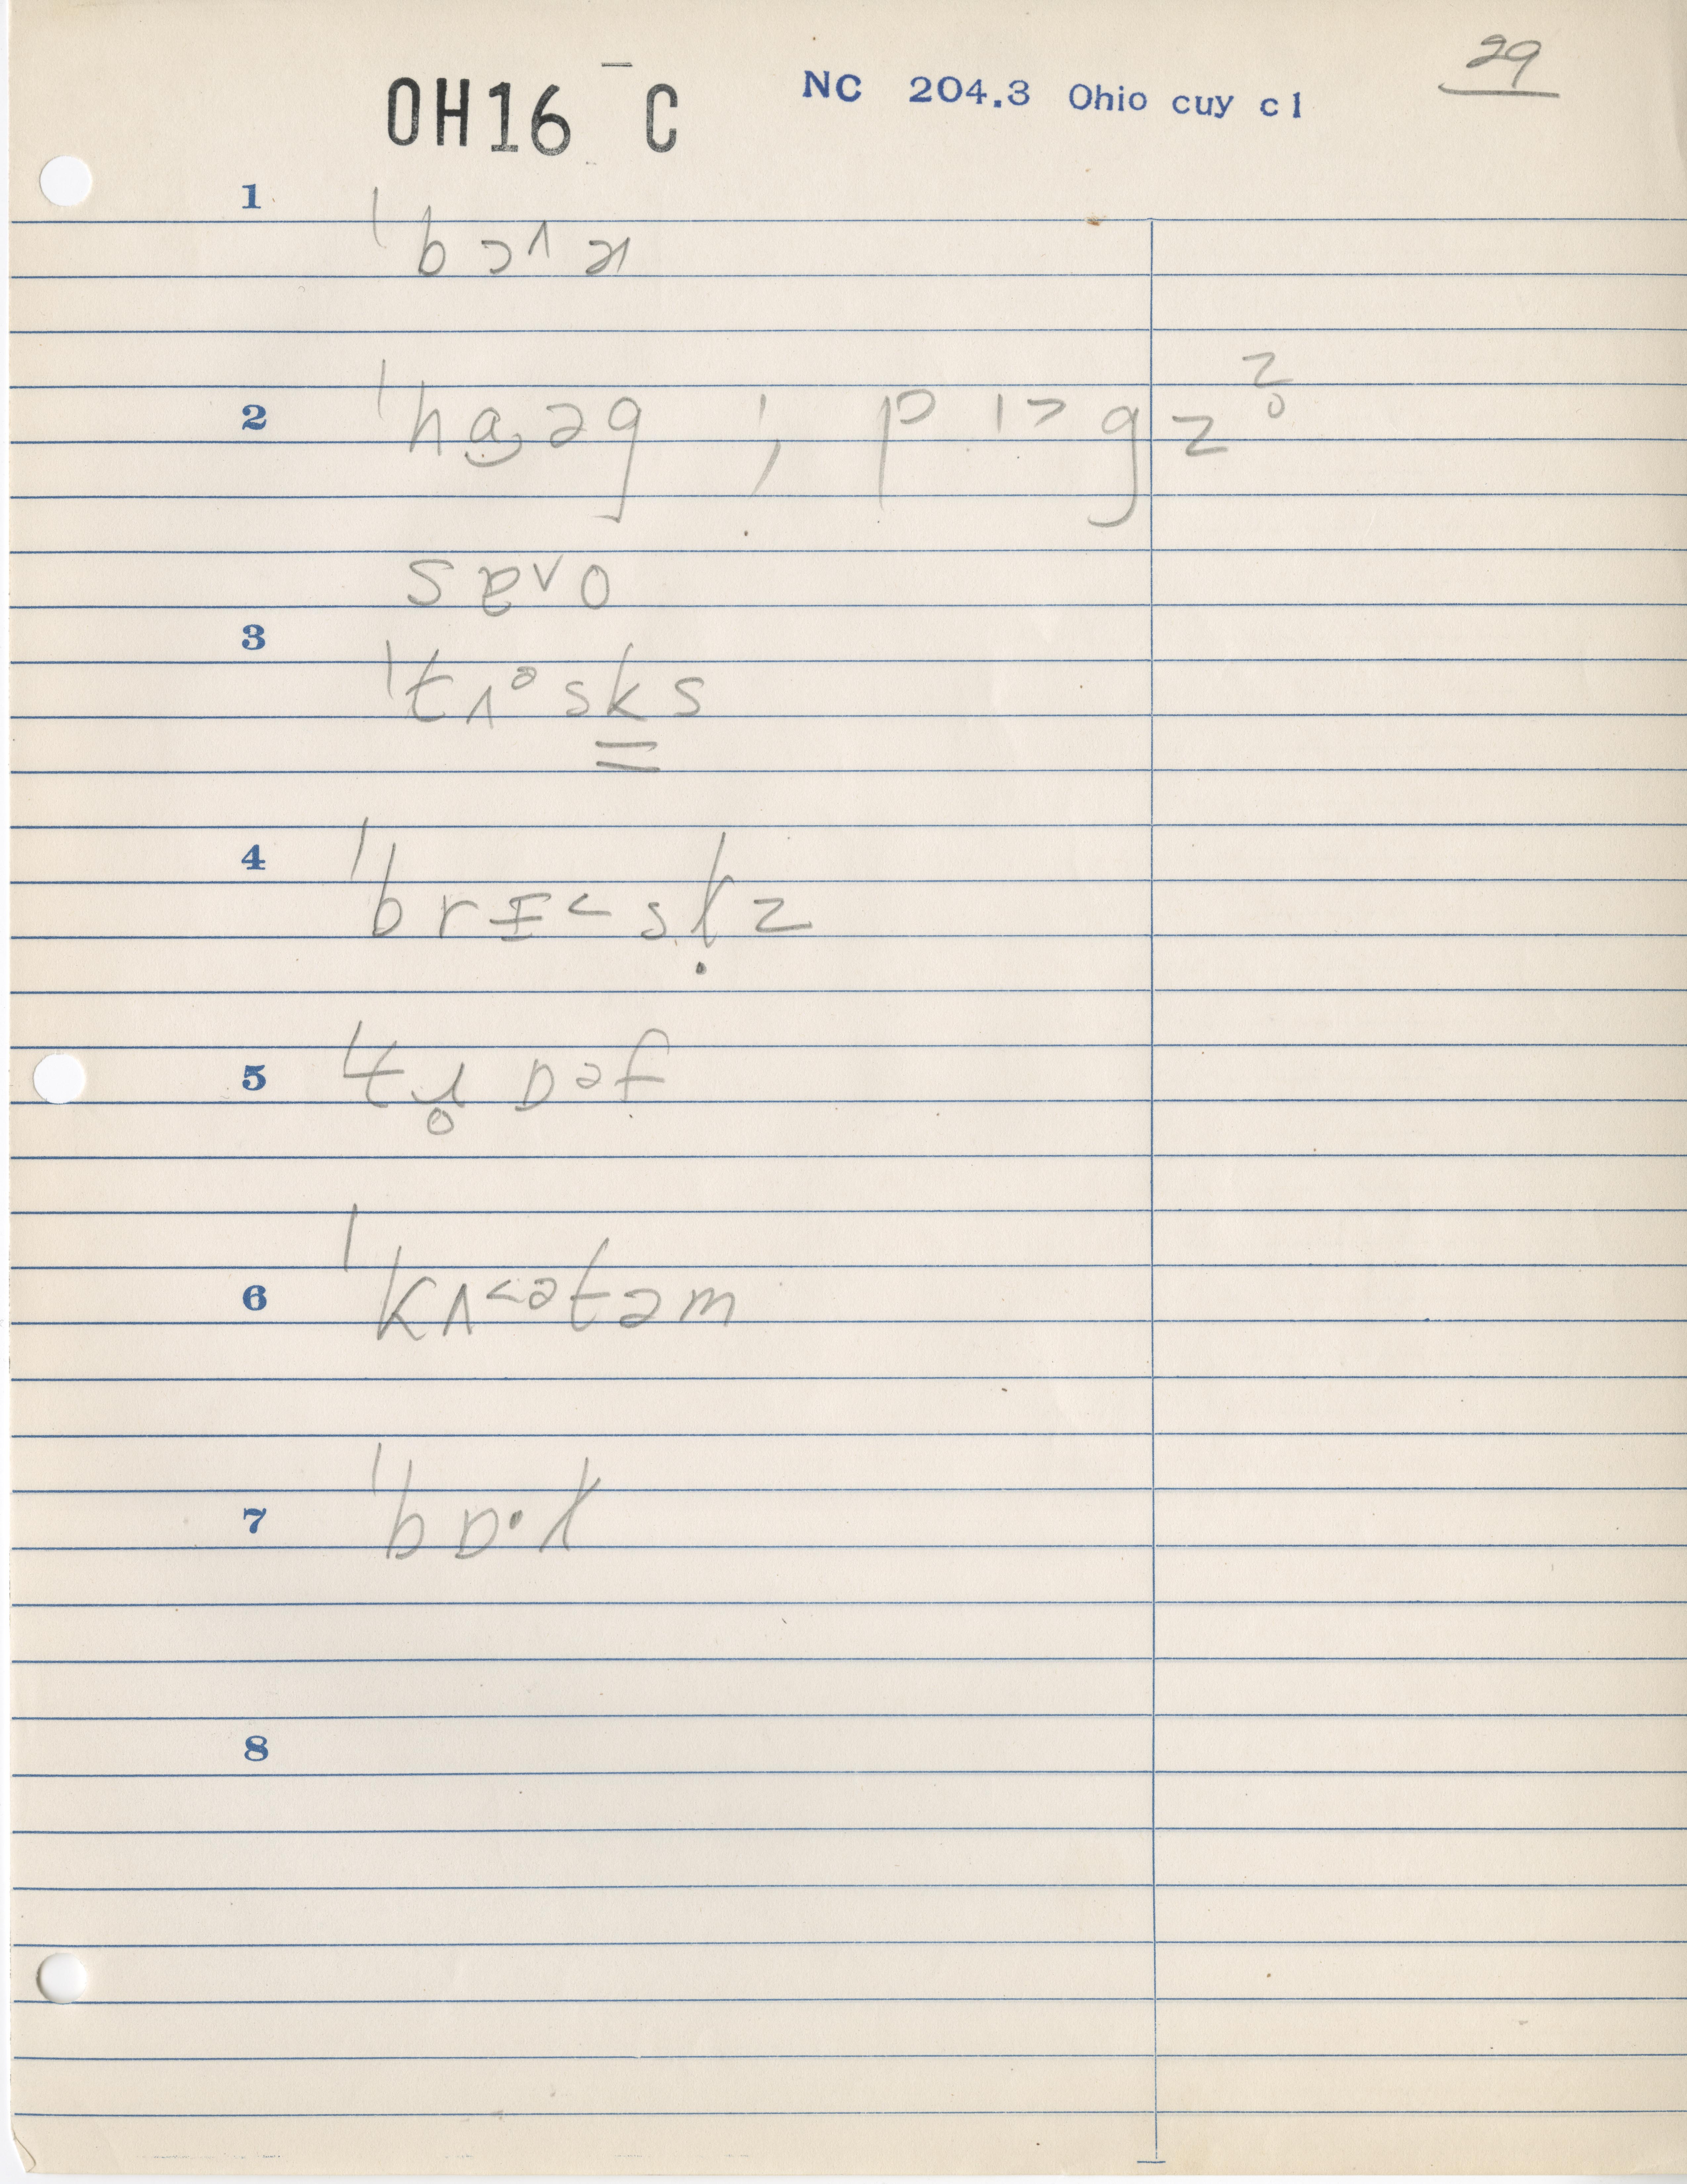 29
OH16 – C
NC 204.3 Ohio cuy cl
1 ˈbɔ^ɚ
2 ˈha̯əg ; pɪ˃gz̥ᶻ
sɐvo
3 ˈtʌᵊsks
4 ˈbrɪ˂sl̩z
5 ˈtɹ̥ɒəf
6 ˈkʌ˂ətəm
7 ˈbɒ·ɫ
8